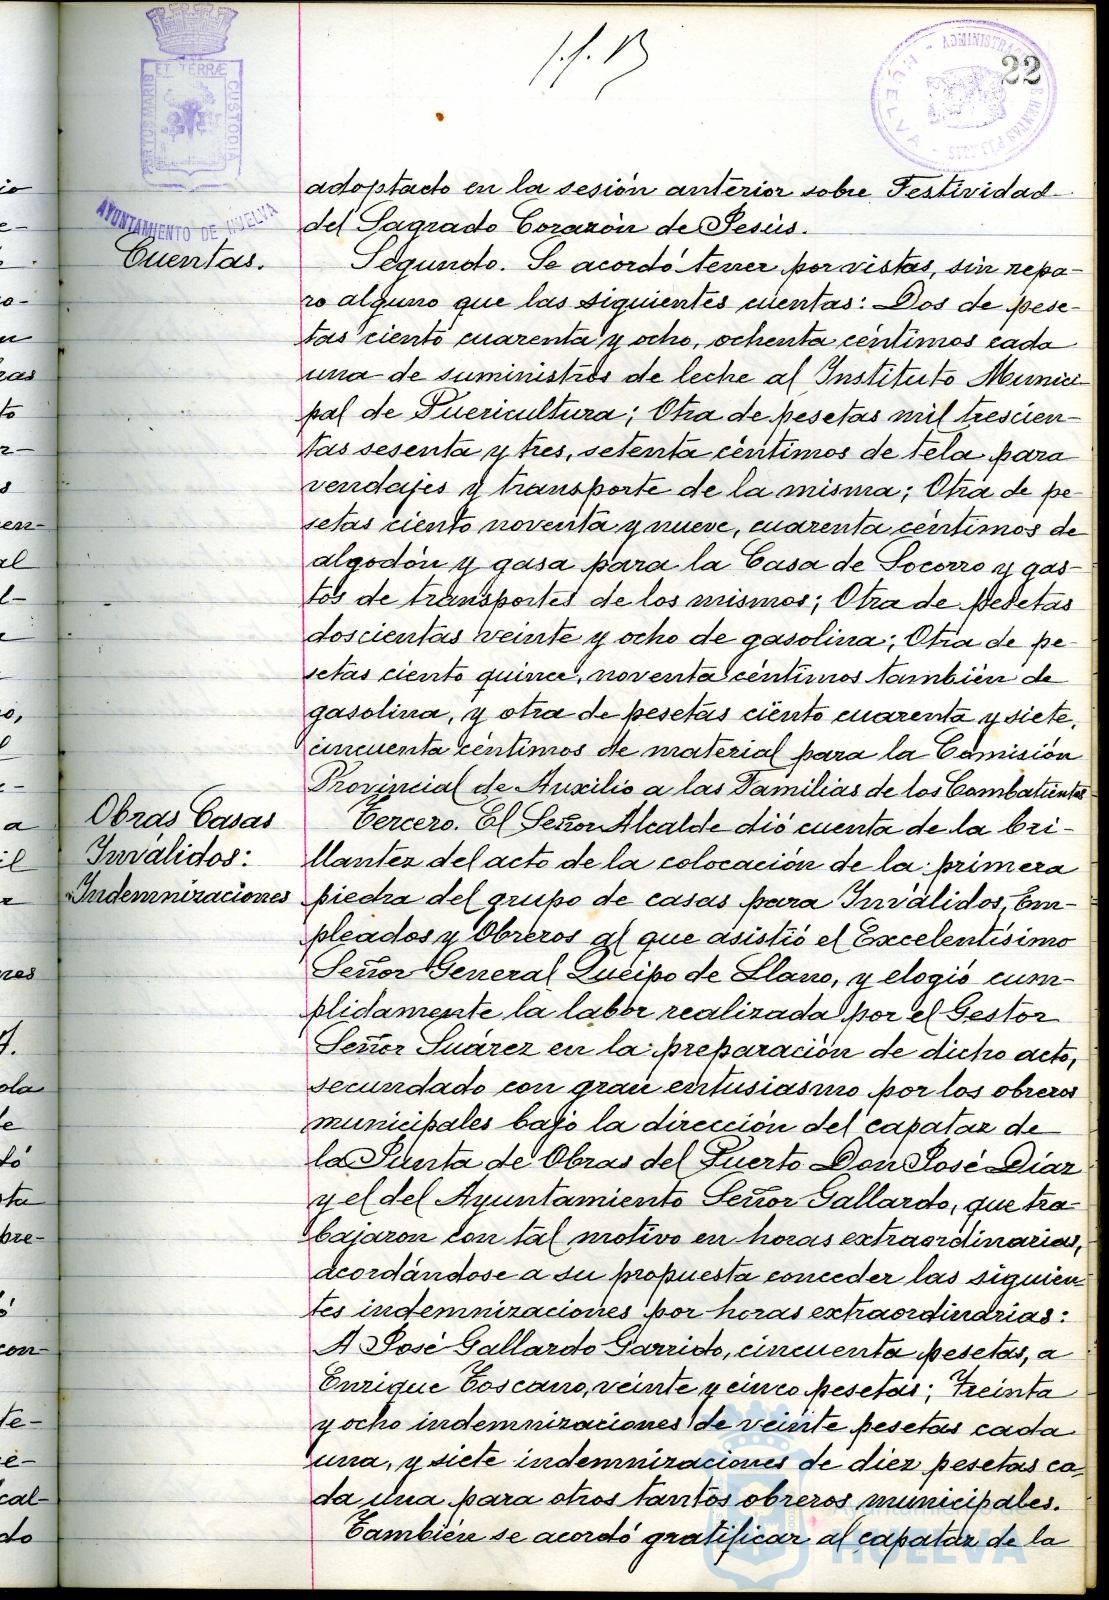 22
ET TERRÆ
CUSTODIA
AYUNTAMIENTO DE HUELVA
HUELVA
adoptado en la sesión anterior sobre Festividad
del Sagrado Corazón de Jesús.
Cuentas.
Segundo. Se acordó tener por vistas, sin repa-
ro alguno que las siguientes cuentas: Dos de pese-
tas ciento cuarenta y ocho, ochenta céntimos cada
una de suministros de leche al Instituto Munici
pal de Puericultura; Otra de pesetas mil trescien-
tas sesenta y tres, setenta céntimos de tela para
vendajes y transporte de la misma; Otra de pe-
setas ciento noventa y nueve, cuarenta céntimos de
algodón y gasa para la Casa de Socorro y gas-
tos de transportes de los mismos; Otra de pesetas
doscientas veinte y ocho de gasolina; Otra de pe-
setas ciento quince, noventa céntimos también de
gasolina, y otra de pesetas ciento cuarenta y siete,
cincuenta céntimos de material para la Comisión
Provincial de Auxilio a las Familias de los Combatientes
Obras Casas
Inválidos:
Indemnizaciones
Tercero. El Señor Alcalde dió cuenta de la bri-
llantez del acto de la colocación de la primera
piedra del grupo de casas para Inválidos, Em-
pleados y Obreros al que asistió el Excelentísimo
Señor General Queipo de Llano, y elogió cum-
plidamente la labor realizada por el Gestor
Señor Suárez en la preparación de dicho acto,
secundado con gran entusiasmo por los obreros
municipales bajo la dirección del capataz de
la Junta de Obras del Puerto Don José Díaz
y el del Ayuntamiento Señor Gallardo, que tra-
bajaron con tal motivo en horas extraordinarias,
acordándose a su propuesta conceder las siguien
tes indemnizaciones por horas extraordinarias:
A José Gallardo Garrido, cincuenta pesetas, a
Enrique Toscano, veinte y cinco pesetas; Treinta
y ocho indemnizaciones de veinte pesetas cada
una, y siete indemnizaciones de diez pesetas ca-
da una para otros tantos obreros municipales.
También se acordó gratificar al capataz de la
Ayuntamiento de
HUELVA